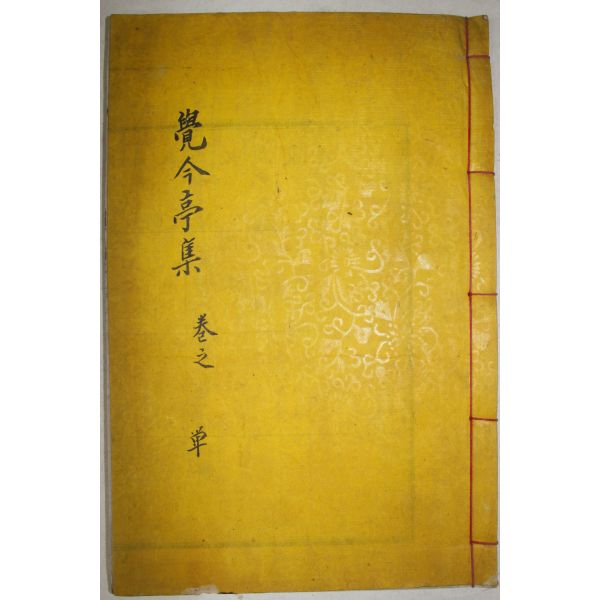 覺今亭集
卷之
單